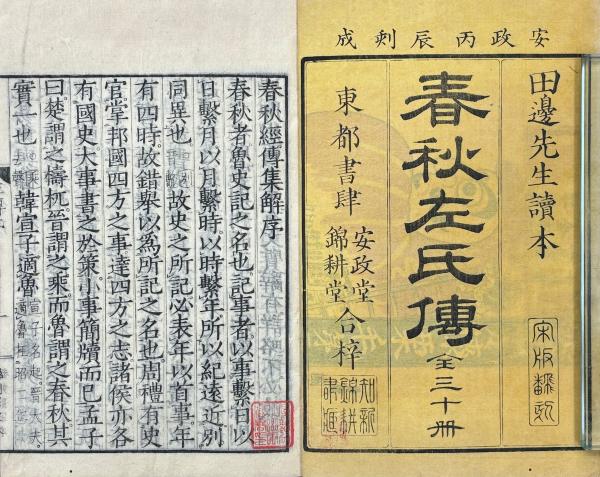 安政丙辰刻成
田邊先生讀本
宋版翻刻
春秋左氏傳 全三十册
東都書肆 安政堂 錦耕堂 合梓
春秋經傳集解序
春秋者魯史記之名也記事者以事繫日以
日繫月以月繫時以時繫年所以紀遠近別
同異也故史之所記必表年以首事年
有四時故錯舉以為所記之名也周禮有史
官掌邦國四方之事達四方之志諸侯亦各
有國史大事書之於策小事簡牘而已孟子
曰楚謂之檮杌晉謂之乘而魯謂之春秋其
實一也韓宣子適魯宣子名起晉大夫